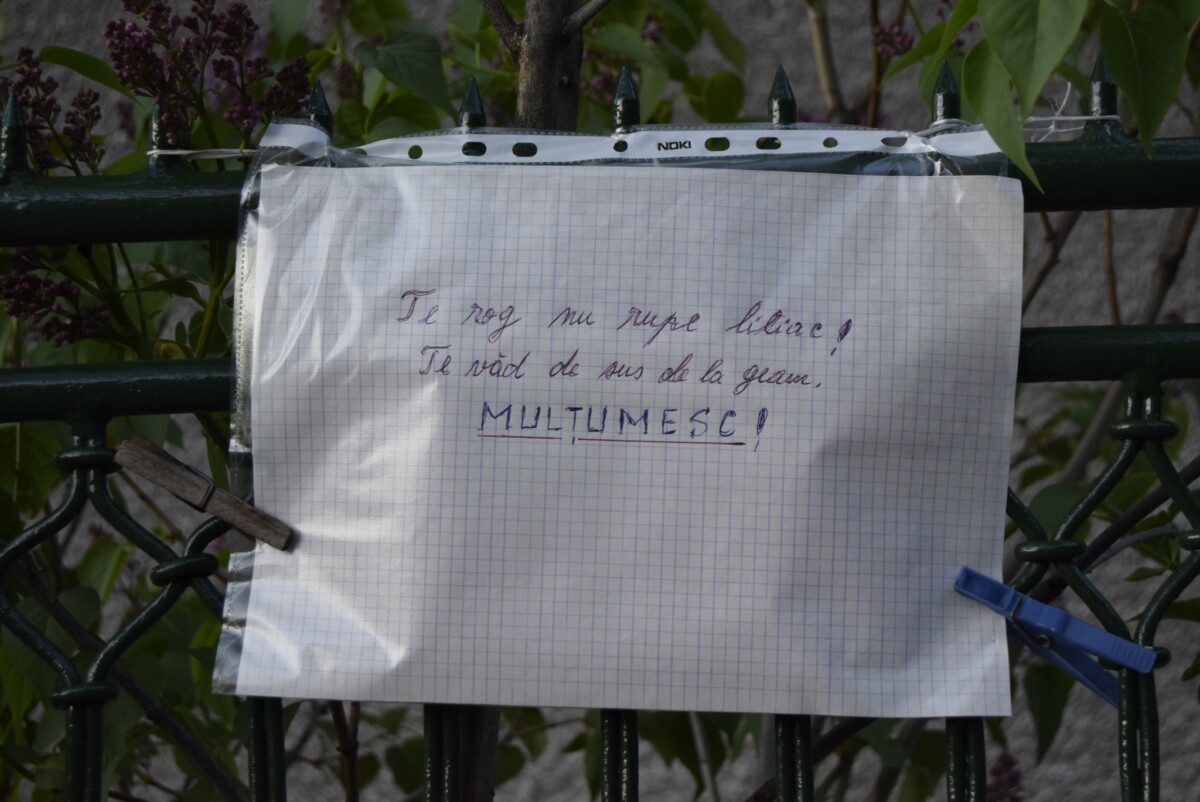 NOKI
Te rog nu rupe liliac!
Te văd de sus de la geam.
MULȚUMESC!